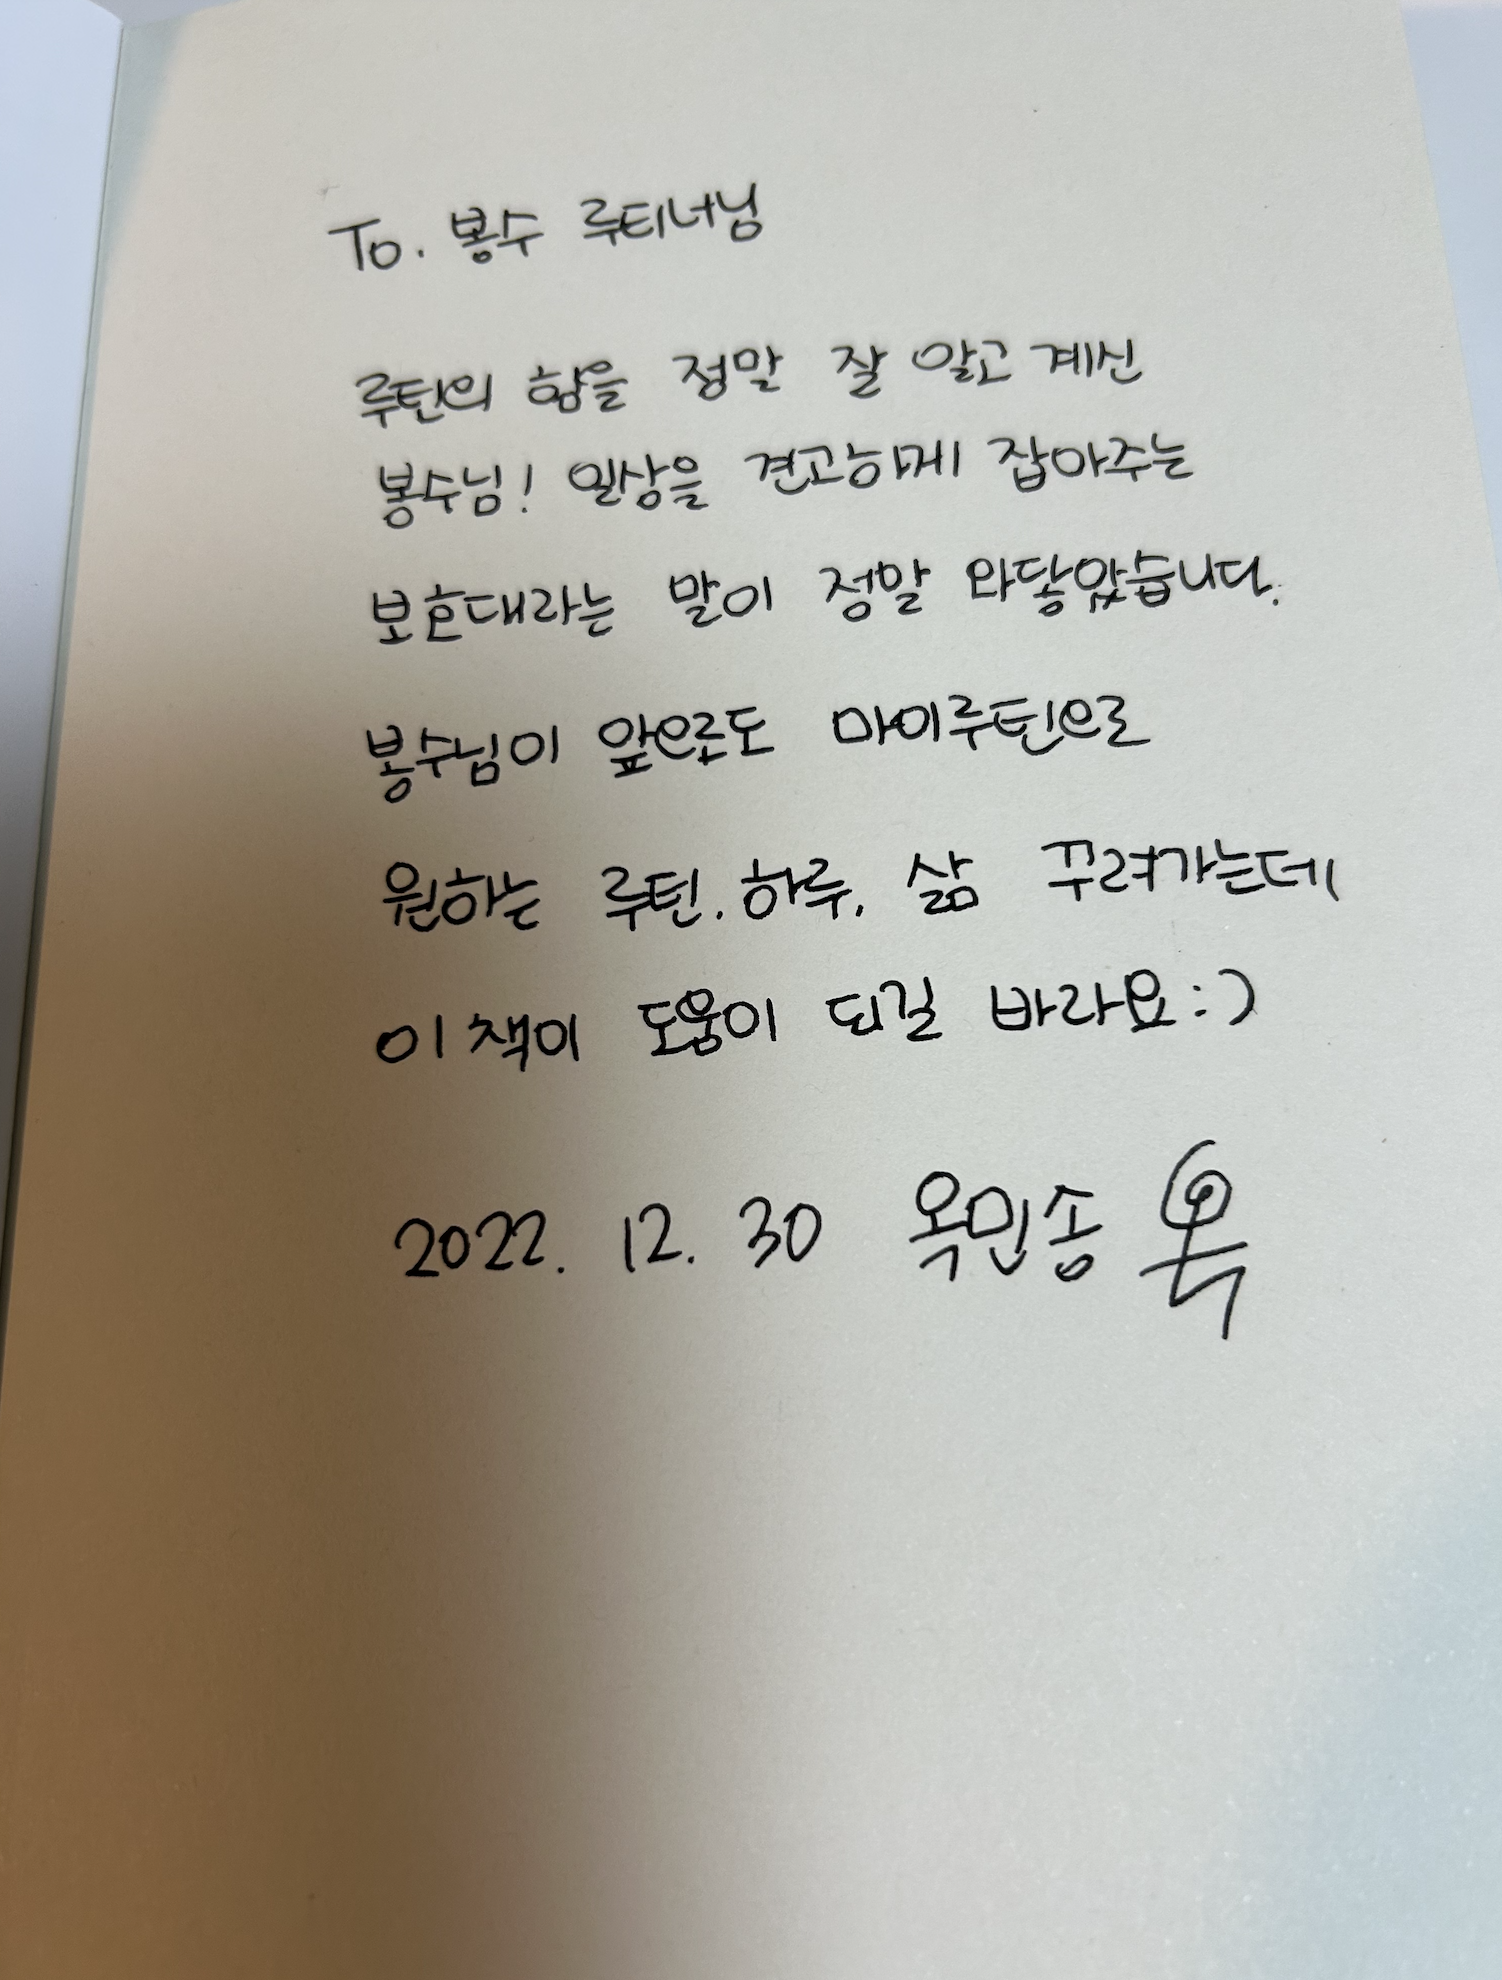 To. 봉수 루티너님
루틴의 힘을 정말 잘 알고 계신
봉수님! 일상을 견고하게 잡아주는
보호대라는 말이 정말 와닿았습니다.
봉수님이 앞으로도 마이루틴으로
원하는 루틴. 하루. 삶 꾸려가는데
이 책이 도움이 되길 바라요:)
2022. 12. 30 옥민송 옥